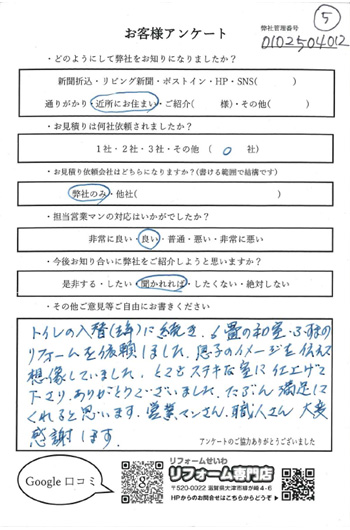 ⑤
お客様アンケート
弊社管理番号
0102504012
・どのようにして弊社をお知りになりましたか?
新聞折込・リビング新聞・ポストイン・HP・SNS( )
通りがかり・近所にお住まい・ご紹介( 様)・その他( )
・お見積りは何社依頼されましたか?
1社・2社・3社・その他 ( 0 社)
・お見積り依頼会社はどちらになりますか?(書ける範囲で結構です)
弊社のみ・他社( )
・担当営業マンの対応はいかがでしたか?
非常に良い・良い・普通・悪い・非常に悪い
・今後お知り合いに弊社をご紹介しようと思いますか?
是非する・したい・聞かれれば・したくない・絶対しない
・その他ご意見等ご自由にお書きください
トイレの入替(去年)に続き、6畳の和室・ふすまの
リフォームを依頼しました。息子のイメージを伝えて
想像していました。とてもステキな室に仕上げて
下さり、ありがとうございました。たぶん満足して
くれると思います。営業マンさん、職人さん 大変
感謝します。
アンケートのご協力ありがとうございました
Google 口コミ
リフォームせいわ
リフォーム専門店
〒520-0022 滋賀県大津市柳が崎4-6
HPからのお問合せはこちらからどうぞ▶